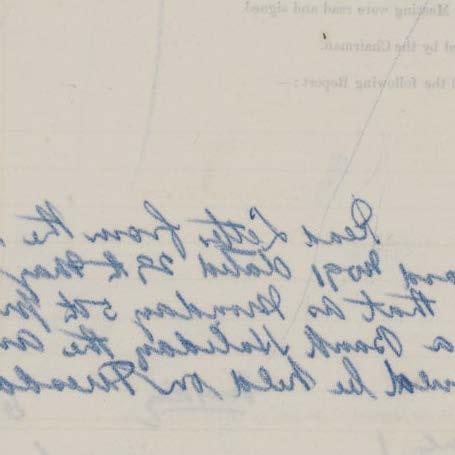 Meeting were read and signed.
by the Chairman.
the following Report:—
Read Letter from the
and dated 29th May
that as Monday 5th
a Bank Holiday the
be held on